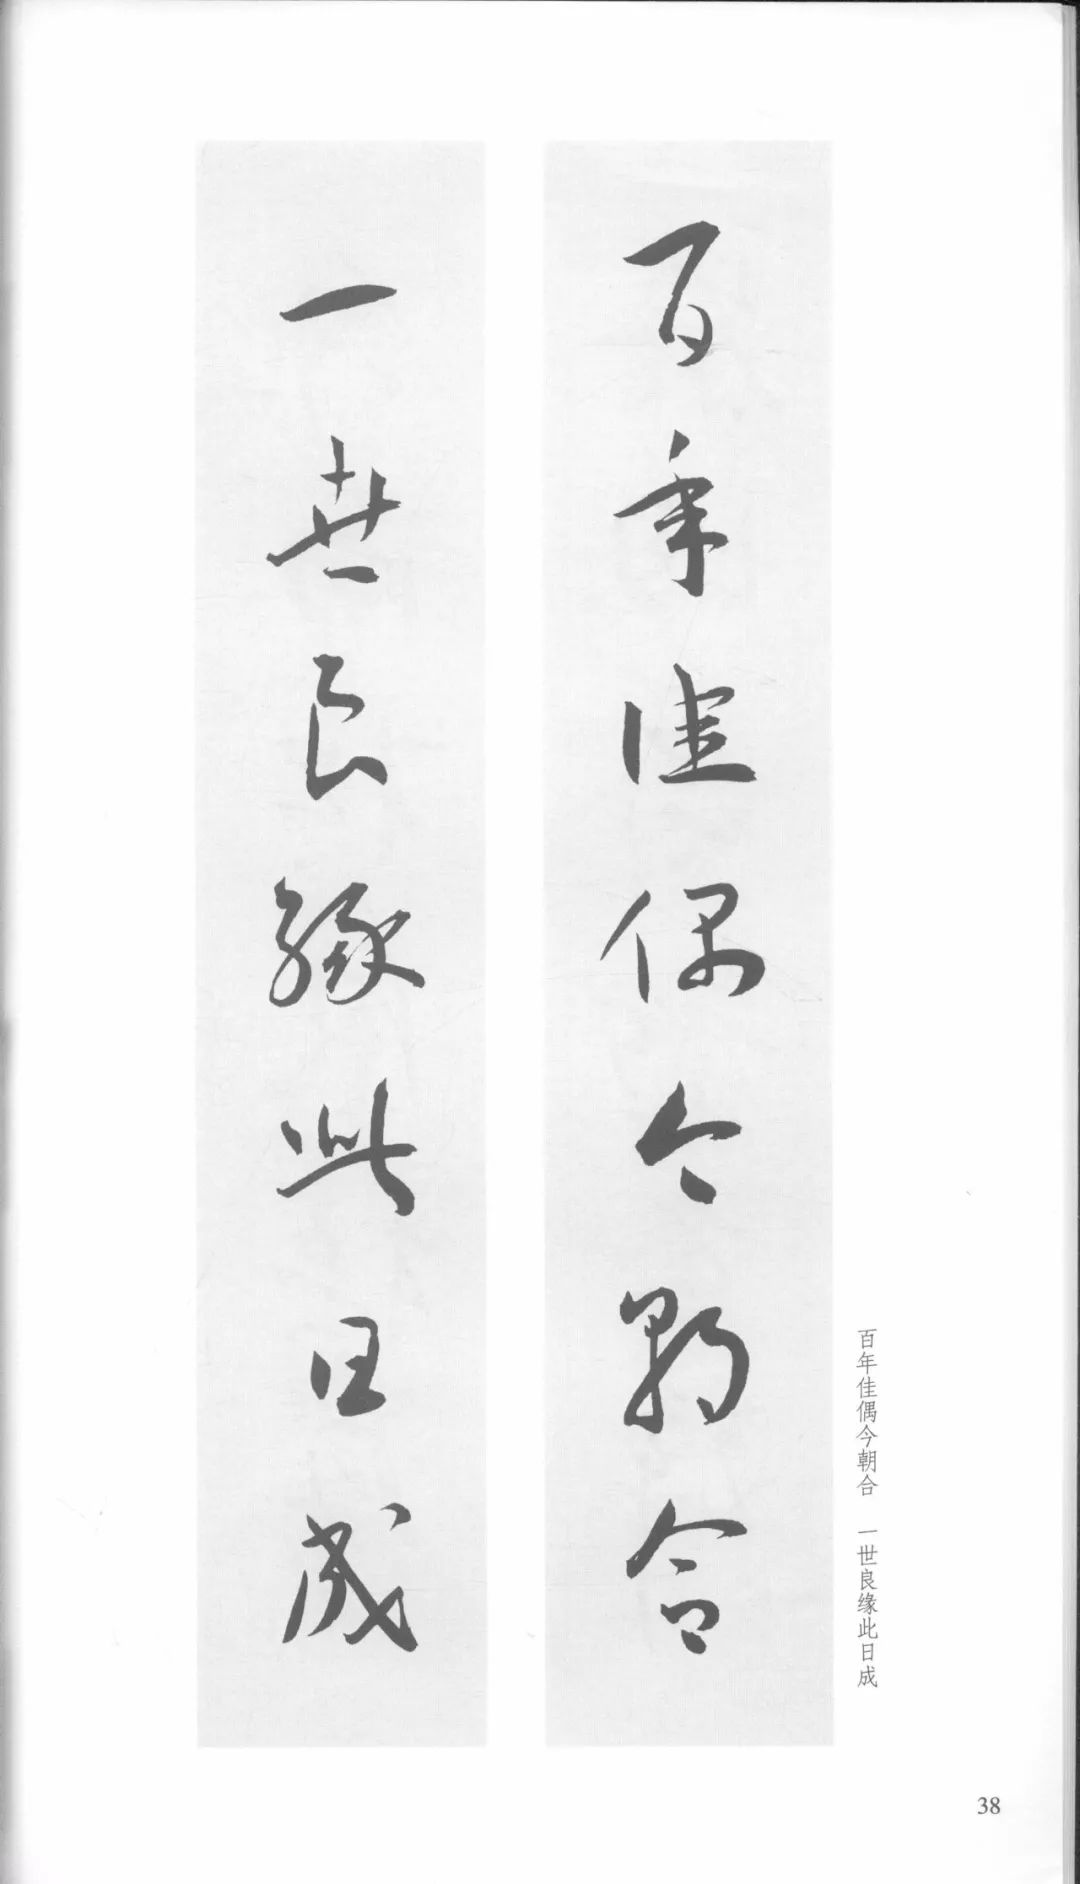 百年佳偶今朝合
一世良缘此日成
百年佳偶今朝合 一世良缘此日成
38